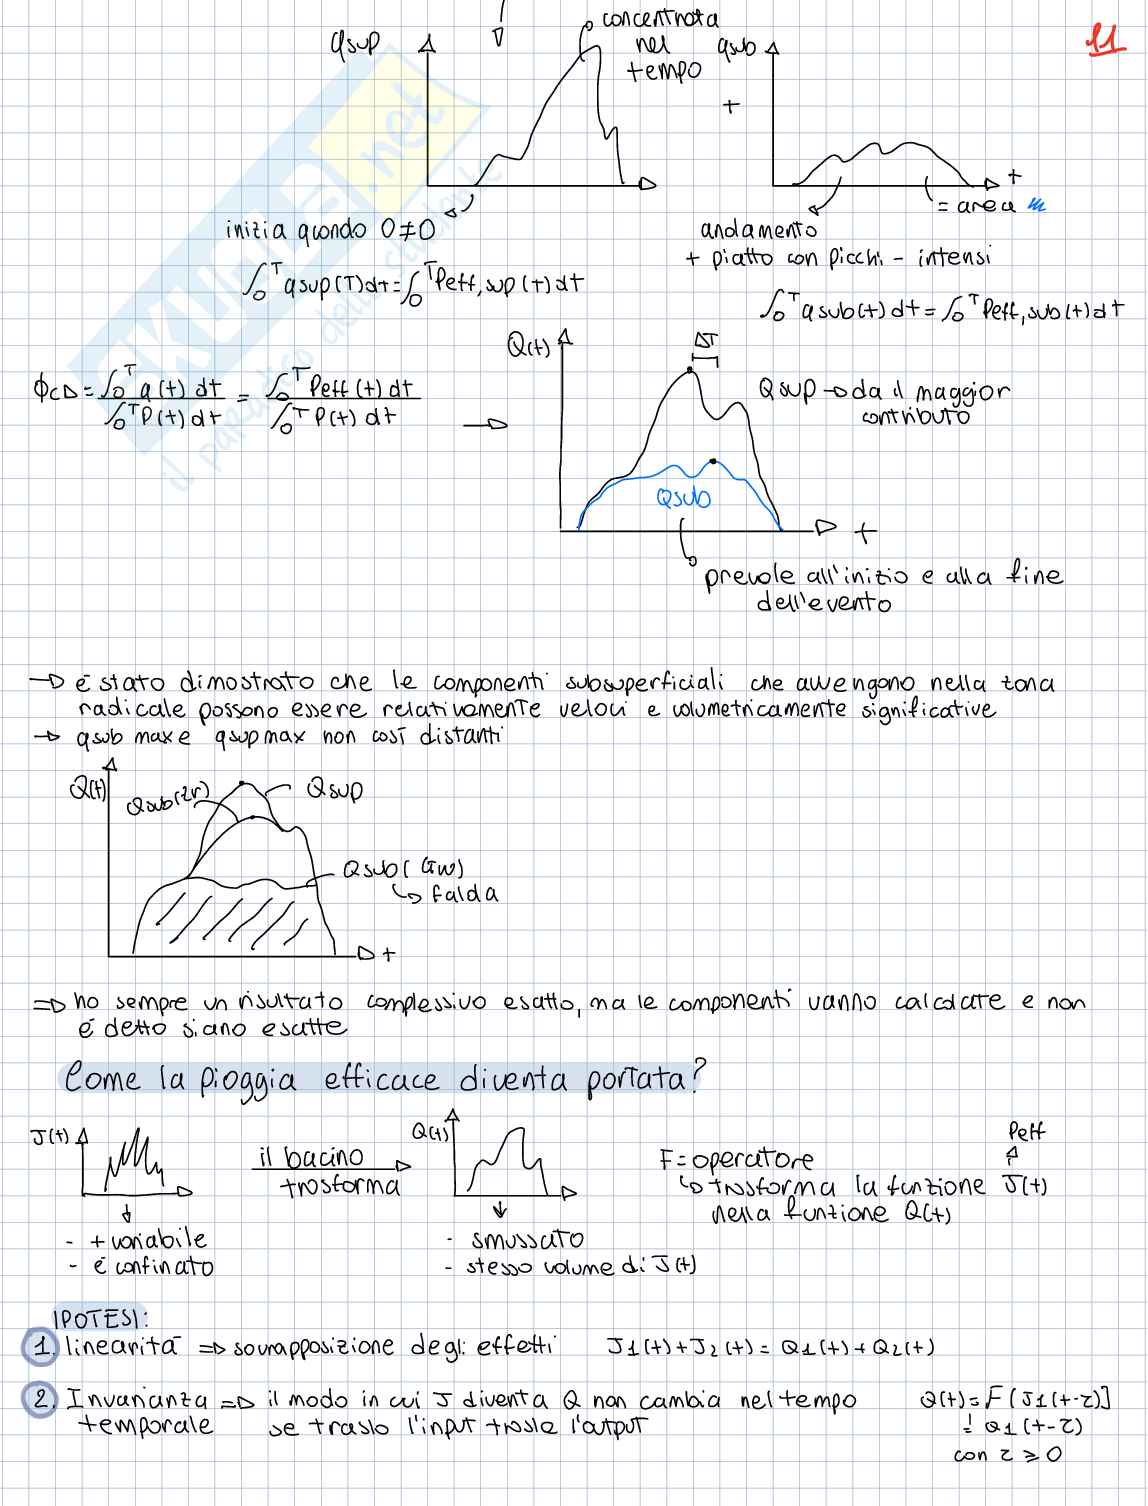 qsup
concentrata
nel
tempo
qsub
11
+
t
= area m
inizia quando O≠0
andamento
+ piatto con picchi - intensi
∫₀ᵀ qsup(T)dt = ∫₀ᵀ Peff,sup(t)dt
∫₀ᵀ qsub(t)dt = ∫₀ᵀ Peff,sub(t)dt
Q(t)
ΔT
ϕCD = ∫₀ᵀ q(t) dt / ∫₀ᵀ P(t) dt = ∫₀ᵀ Peff(t) dt / ∫₀ᵀ P(t) dt
Qsup → da il maggior
contributo
Qsub
t
prevale all'inizio e alla fine
dell'evento
→ é stato dimostrato che le componenti subsuperficiali che avvengono nella zona
radicale possono essere relativamente veloci e volumetricamente significative
→ qsub max e qsup max non così distanti
Q(t)
Qsub(zr)
Qsup
Qsub(GW)
↳ falda
t
⇒ ho sempre un risultato complessivo esatto, ma le componenti vanno calcolate e non
é detto siano esatte
Come la pioggia efficace diventa portata?
J(t)
il bacino
trasforma
Q(t)
F = operatore
↳ trasforma la funzione J(t)
Peff
nella funzione Q(t)
- + variabile
- é confinato
- smussato
- stesso volume di J(t)
IPOTESI:
1. linearità ⇒ sovrapposizione degli effetti J1(t)+J2(t) = Q1(t)+Q2(t)
2. Invarianza ⇒ il modo in cui J diventa Q non cambia nel tempo Q(t) = F[J1(t-τ)]
temporale se traslo l'input trasla l'output = Q1(t-τ)
con τ ≥ 0
SKUOLA.net
il paradiso dello studente